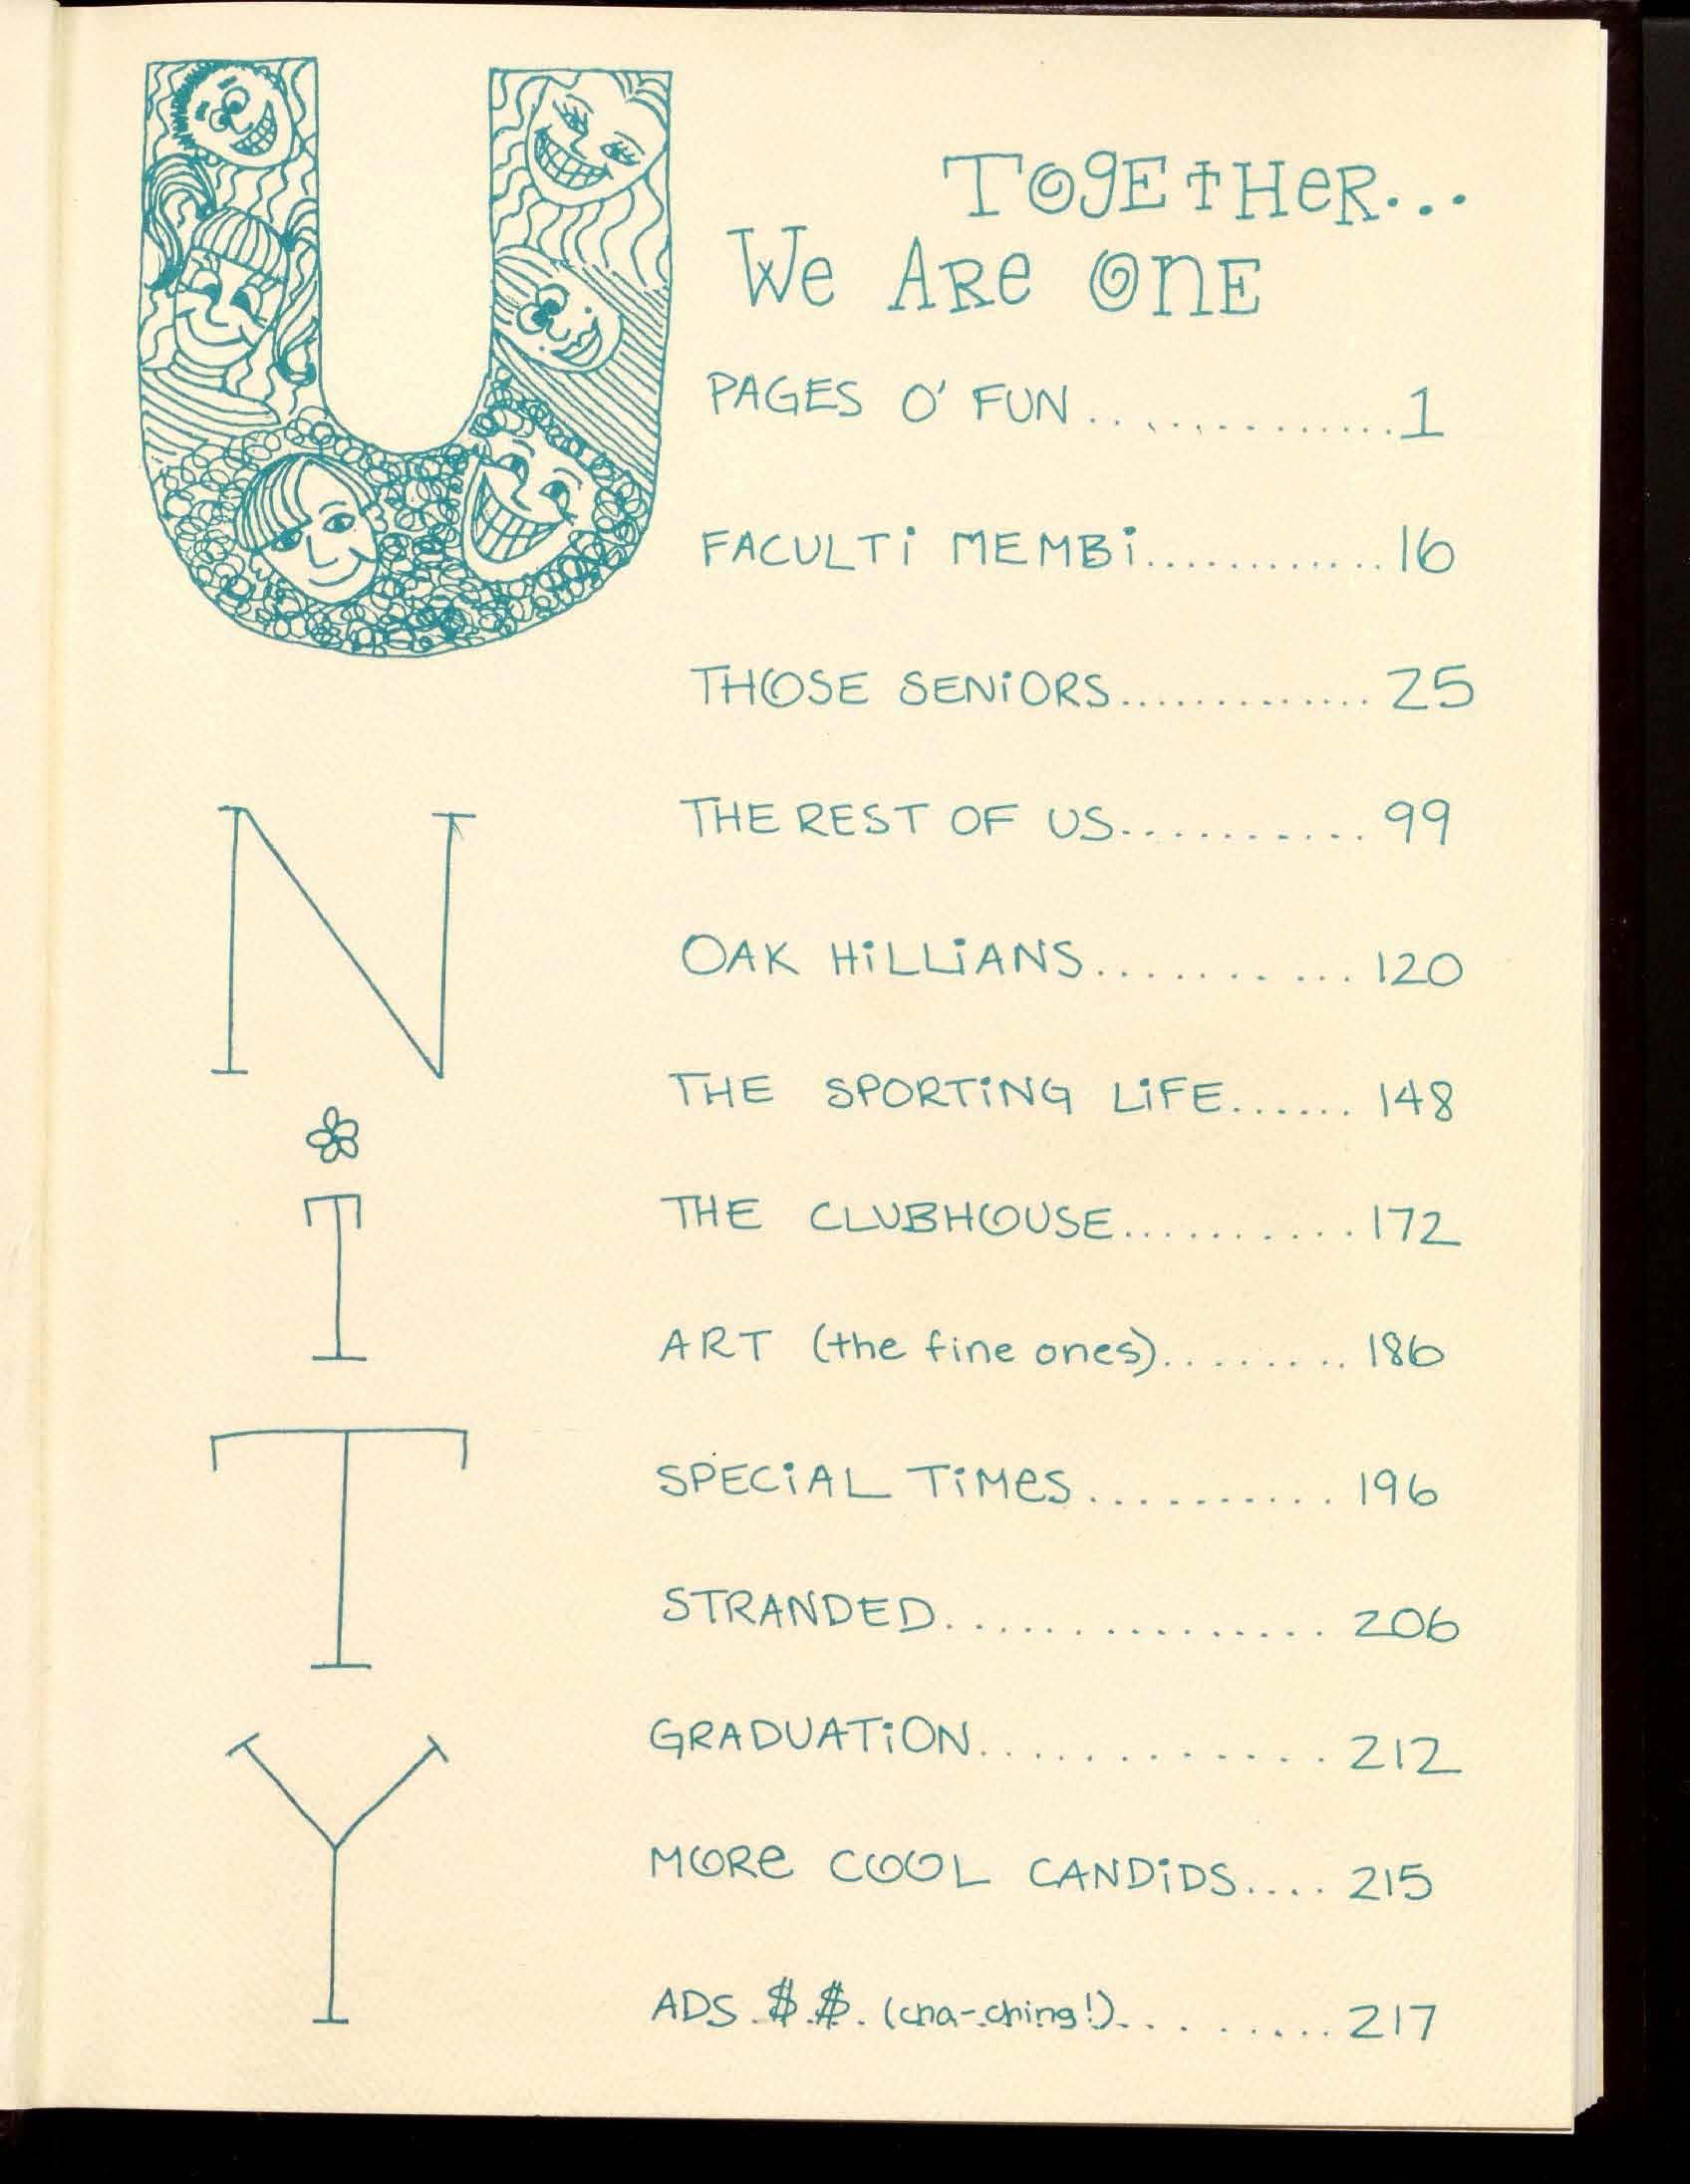 TOGETHER...
We ARe ONE
PAGES O' FUN.............1
FACULTi MEMBi.............16
THOSE SENiORS.............25
THE REST OF US...........99
OAK HiLLiANS............120
THE SPORTiNG LiFE.......148
THE CLUBHOUSE...........172
ART (the fine ones).........186
SPECiAL TiMes...........196
STRANDED................206
GRADUATiON.............212
MORe COOL CANDiDS....215
ADS.$.$.(cha-ching!).........217
U
N
i
T
Y